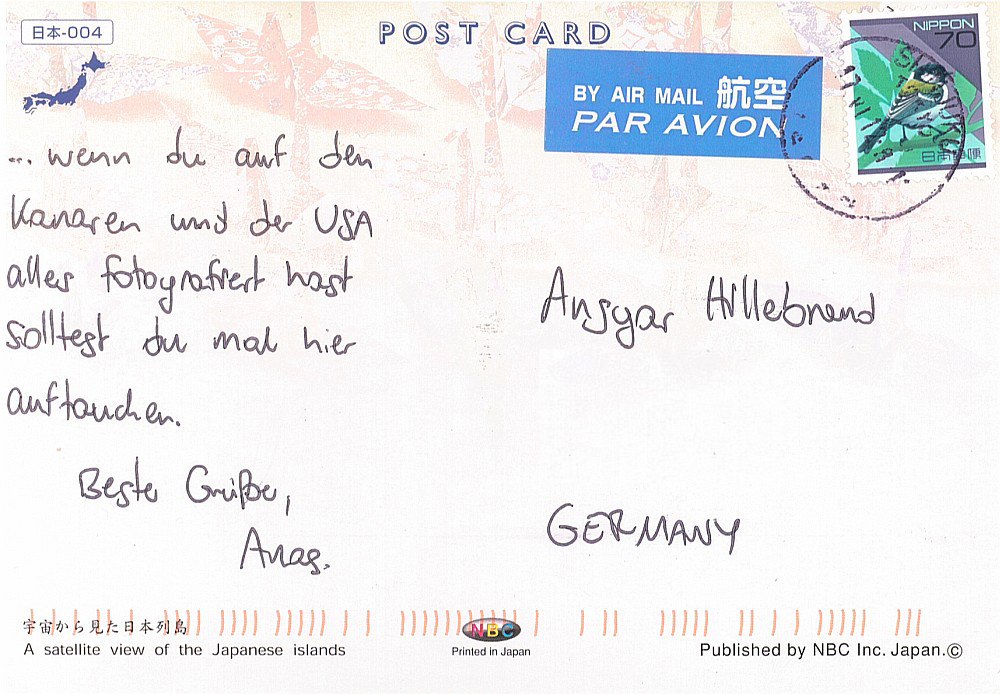 日本-004
POST CARD
BY AIR MAIL 航空
PAR AVION
NIPPON
70
日本郵便
... wenn du auf den
Kanaren und der USA
alles fotografiert hast
solltest du mal hier
auftauchen.
Beste Grüße,
Anas.
Ansgar Hillebrand
GERMANY
宇宙から見た日本列島
A satellite view of the Japanese islands
NBC
Printed in Japan
Published by NBC Inc. Japan.©